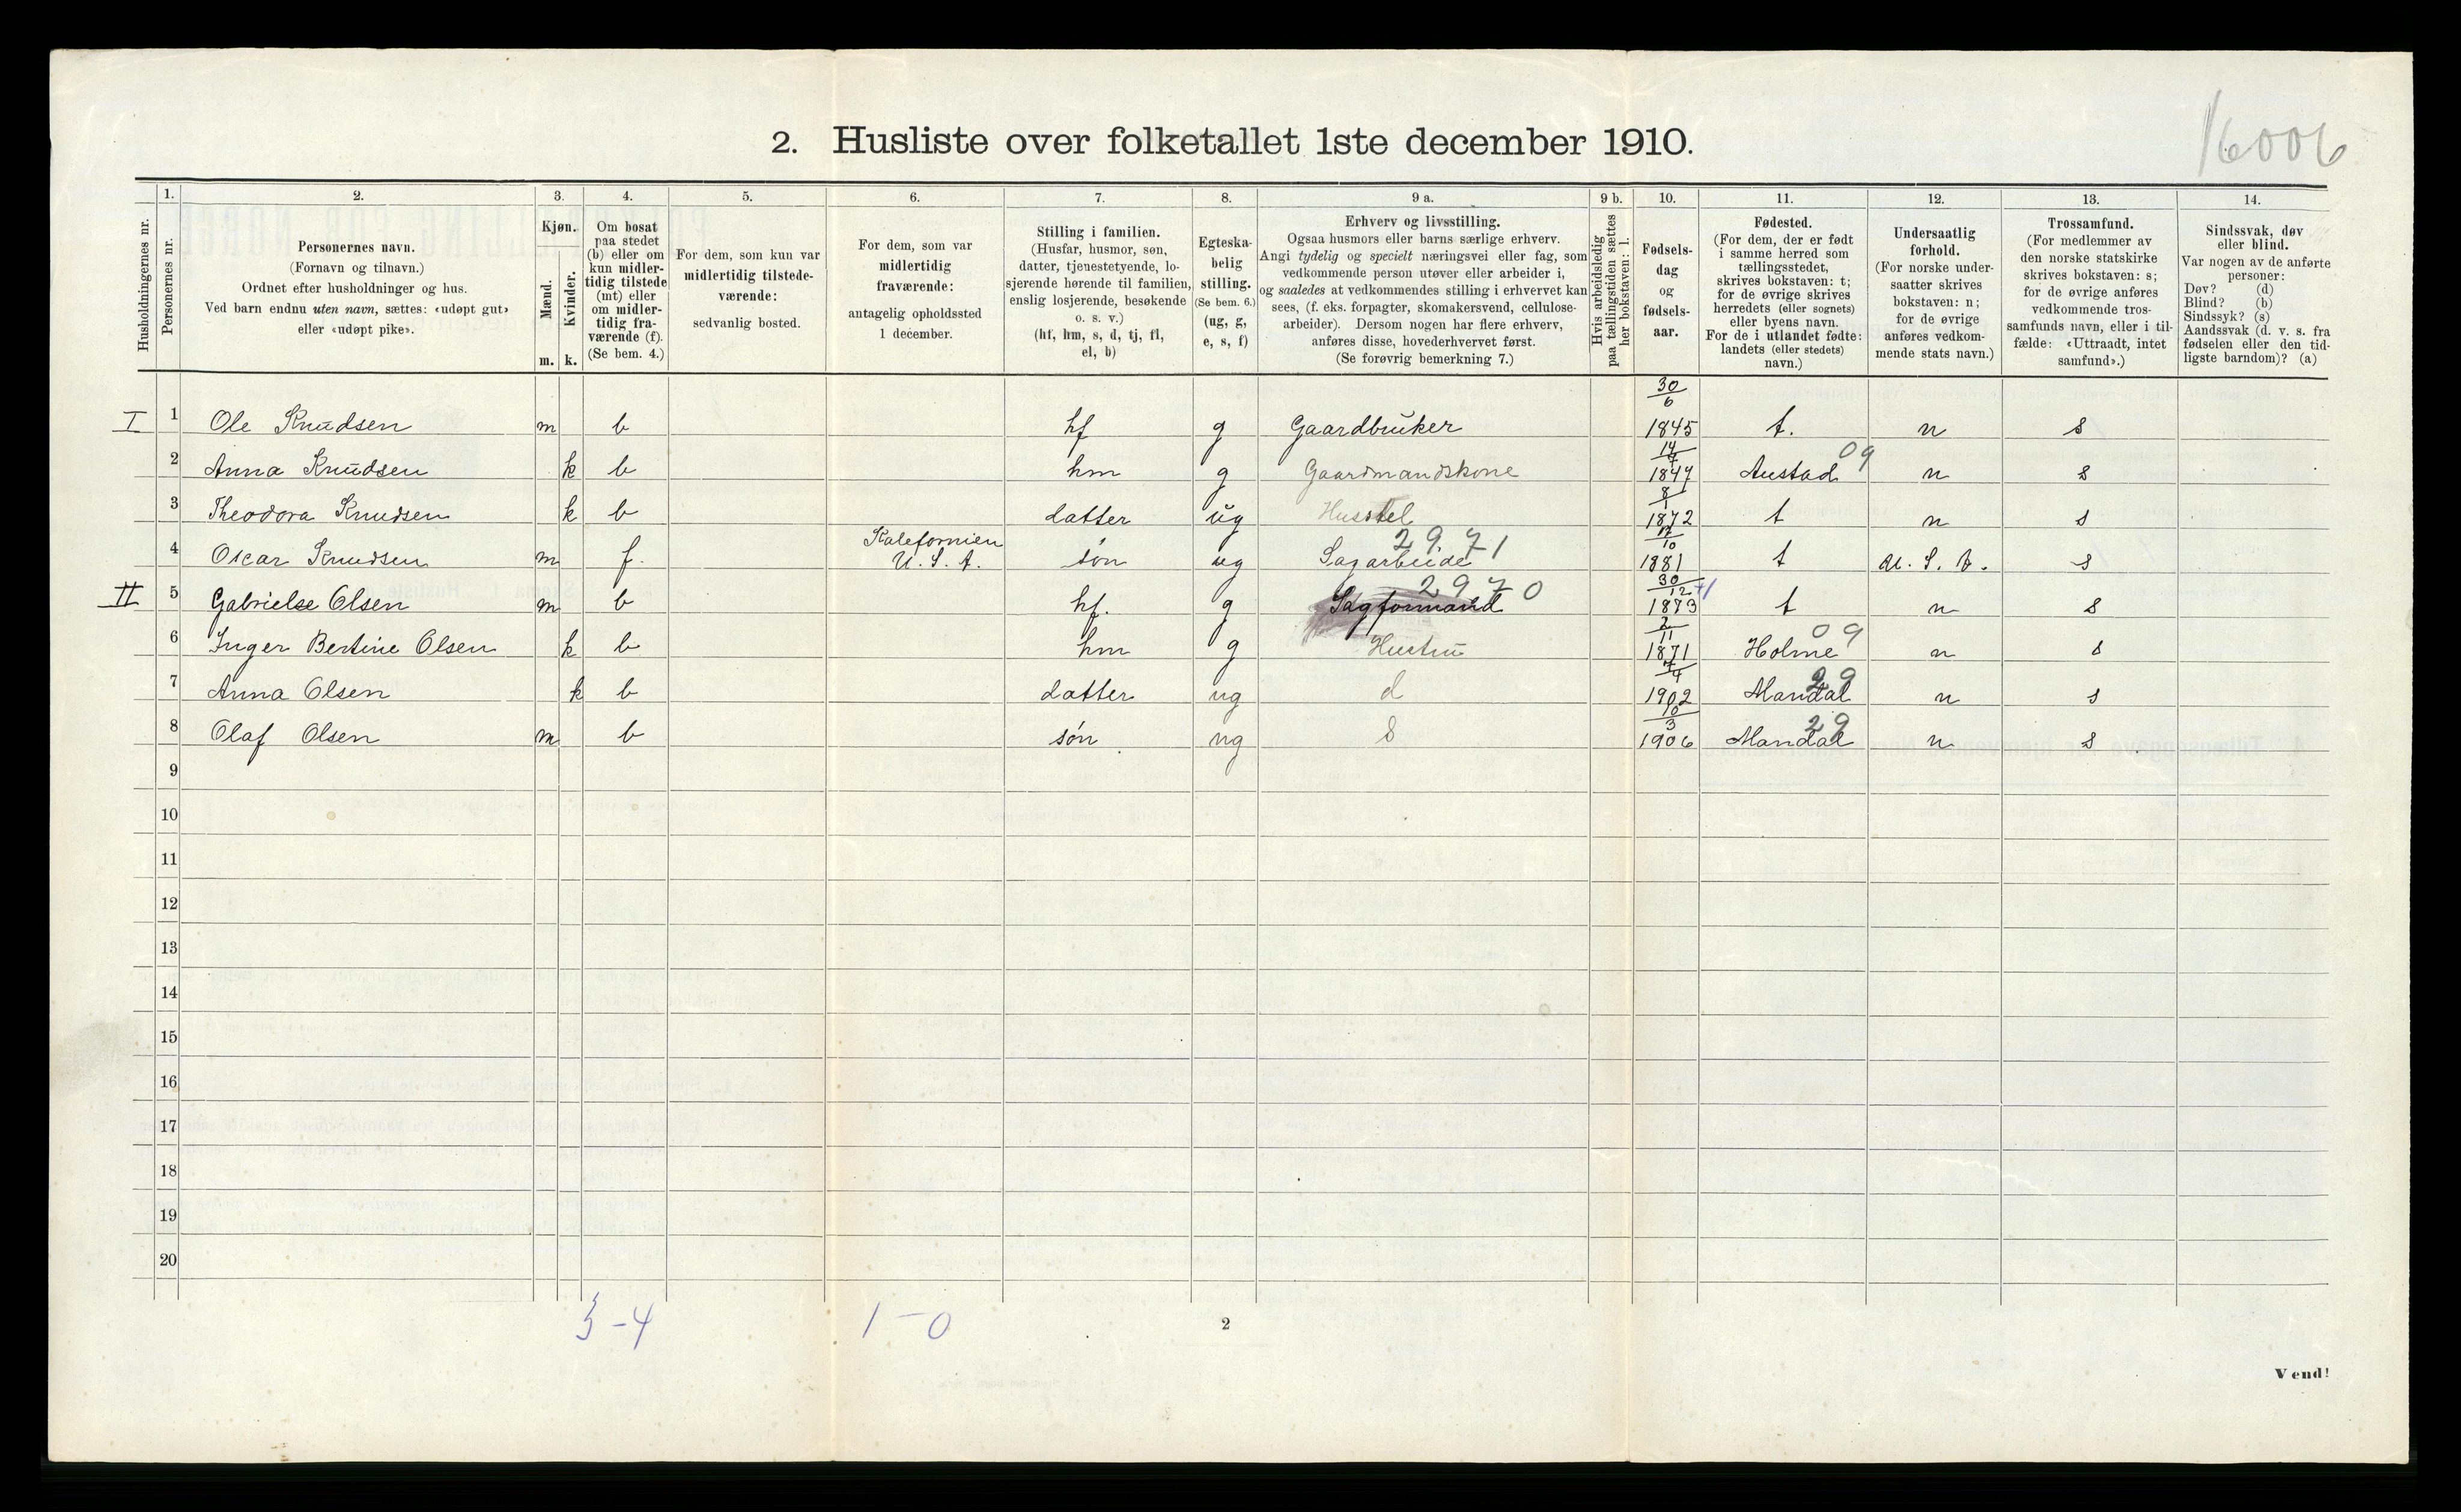 16006
2. Husliste over folketallet 1ste december 1910.
Husholdningernes nr.
1.
Personernes nr.
2.
Personernes navn.
(Fornavn og tilnavn.)
Ordnet efter husholdninger og hus.
Ved barn endnu uten navn, sættes: «udøpt gut»
eller «udøpt pike».
3.
Kjøn.
Mænd.
Kvinder.
m. k.
4.
Om bosat
paa stedet
(b) eller om
kun midler-
tidig tilstede
(mt) eller
om midler-
tidig fra-
værende (f).
(Se bem. 4.)
5.
For dem, som kun var
midlertidig tilstede-
værende:
sedvanlig bosted.
6.
For dem, som var
midlertidig
fraværende:
antagelig opholdssted
1 december.
7.
Stilling i familien.
(Husfar, husmor, søn,
datter, tjenestetyende, lo-
sjerende hørende til familien,
enslig losjerende, besøkende
o. s. v.)
(hf, hm, s, d, tj, fl,
el, b)
8.
Egteska-
belig
stilling.
(Se bem. 6.)
(ug, g,
e, s, f)
9 a.
Erhverv og livsstilling.
Ogsaa husmors eller barns særlige erhverv.
Angi tydelig og specielt næringsvei eller fag, som
vedkommende person utøver eller arbeider i,
og saaledes at vedkommendes stilling i erhvervet kan
sees, (f. eks. forpagter, skomakersvend, cellulose-
arbeider). Dersom nogen har flere erhverv,
anføres disse, hovederhvervet først.
(Se forøvrig bemerkning 7.)
9 b.
Hvis arbeidsledig
paa tællingstiden sættes
her bokstaven: l.
10.
Fødsels-
dag
og
fødsels-
aar.
11.
Fødested.
(For dem, der er født
i samme herred som
tællingsstedet,
skrives bokstaven: t;
for de øvrige skrives
herredets (eller sognets)
eller byens navn.
For de i utlandet fødte:
landets (eller stedets)
navn.)
12.
Undersaatlig
forhold.
(For norske under-
saatter skrives
bokstaven: n;
for de øvrige
anføres vedkom-
mende stats navn.)
13.
Trossamfund.
(For medlemmer av
den norske statskirke
skrives bokstaven: s;
for de øvrige anføres
vedkommende tros-
samfunds navn, eller i til-
fælde: «Uttraadt, intet
samfund».)
14.
Sindssvak, døv
eller blind.
Var nogen av de anførte
personer:
Døv? (d)
Blind? (b)
Sindssyk? (s)
Aandssvak (d. v. s. fra
fødselen eller den tid-
ligste barndom)? (a)
I 1 Ole Knudsen m b hf g Gaardbruker 30/6 1845 t. n s
2 Anna Knudsen k b hm g Gaardmandskone 14/7 1847 Austad 09 n s
3 Theodora Knudsen k b datter ug Husstel 8/1 1872 t n s
4 Oscar Knudsen m f. Kalefornien U. S. A. søn ug Sagarbeide 2971 /10 1881 t U. S. A. s
II 5 Gabrielse Olsen m b hf. g Sagformand 2970 30/12 +1 1873 t n s
6 Inger Bertine Olsen k b hm g Hustru 2/11 1871 Holme 09 n s
7 Anna Olsen k b datter ug d 7/4 1902 Mandal 29 n s
8 Olaf Olsen m b søn ug s 10/3 1906 Mandal 29 n s
9
10
11
12
13
14
15
16
17
18
19
20
3-4 1-0
2
Vend!